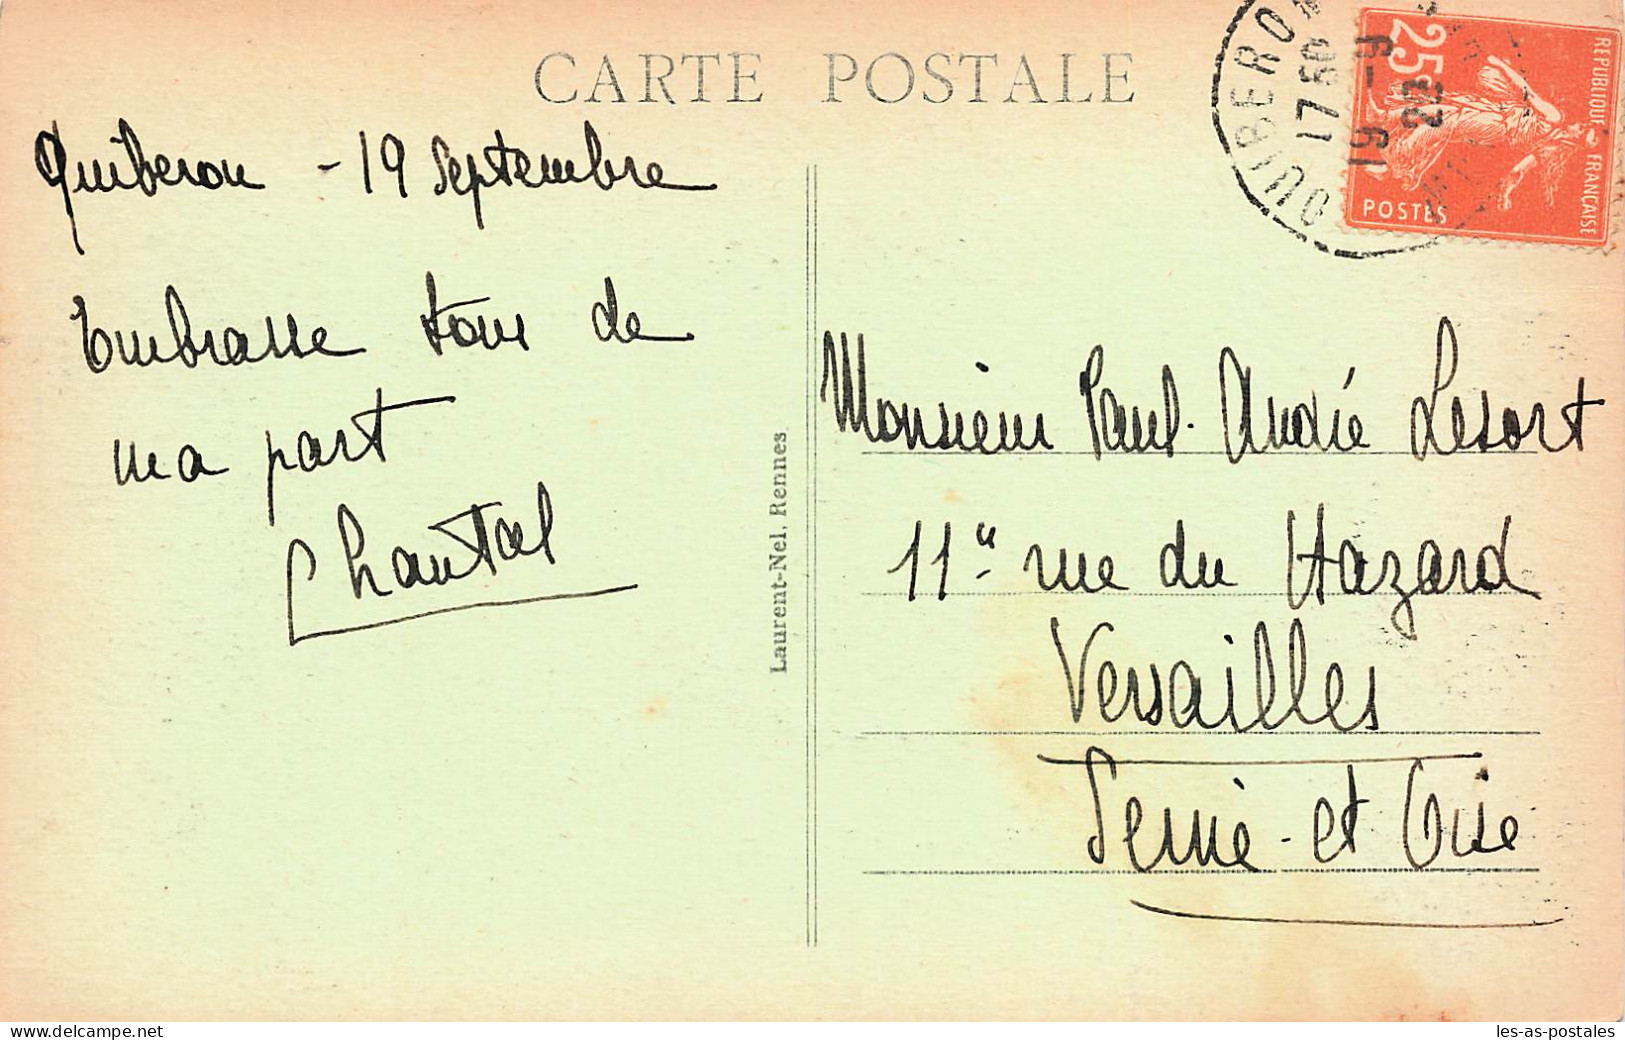 CARTE POSTALE
Quiberon - 19 Septembre
Embrasse tous de
ma part
Chantal
Laurent-Nel, Rennes
QUIBERON
17 50
19 - 9
REPUBLIQUE FRANÇAISE
25c
POSTES
Monsieur Paul-André Lesort
11" rue du Hazard
Versailles
Seine-et Oise
www.delcampe.net
les-as-postales